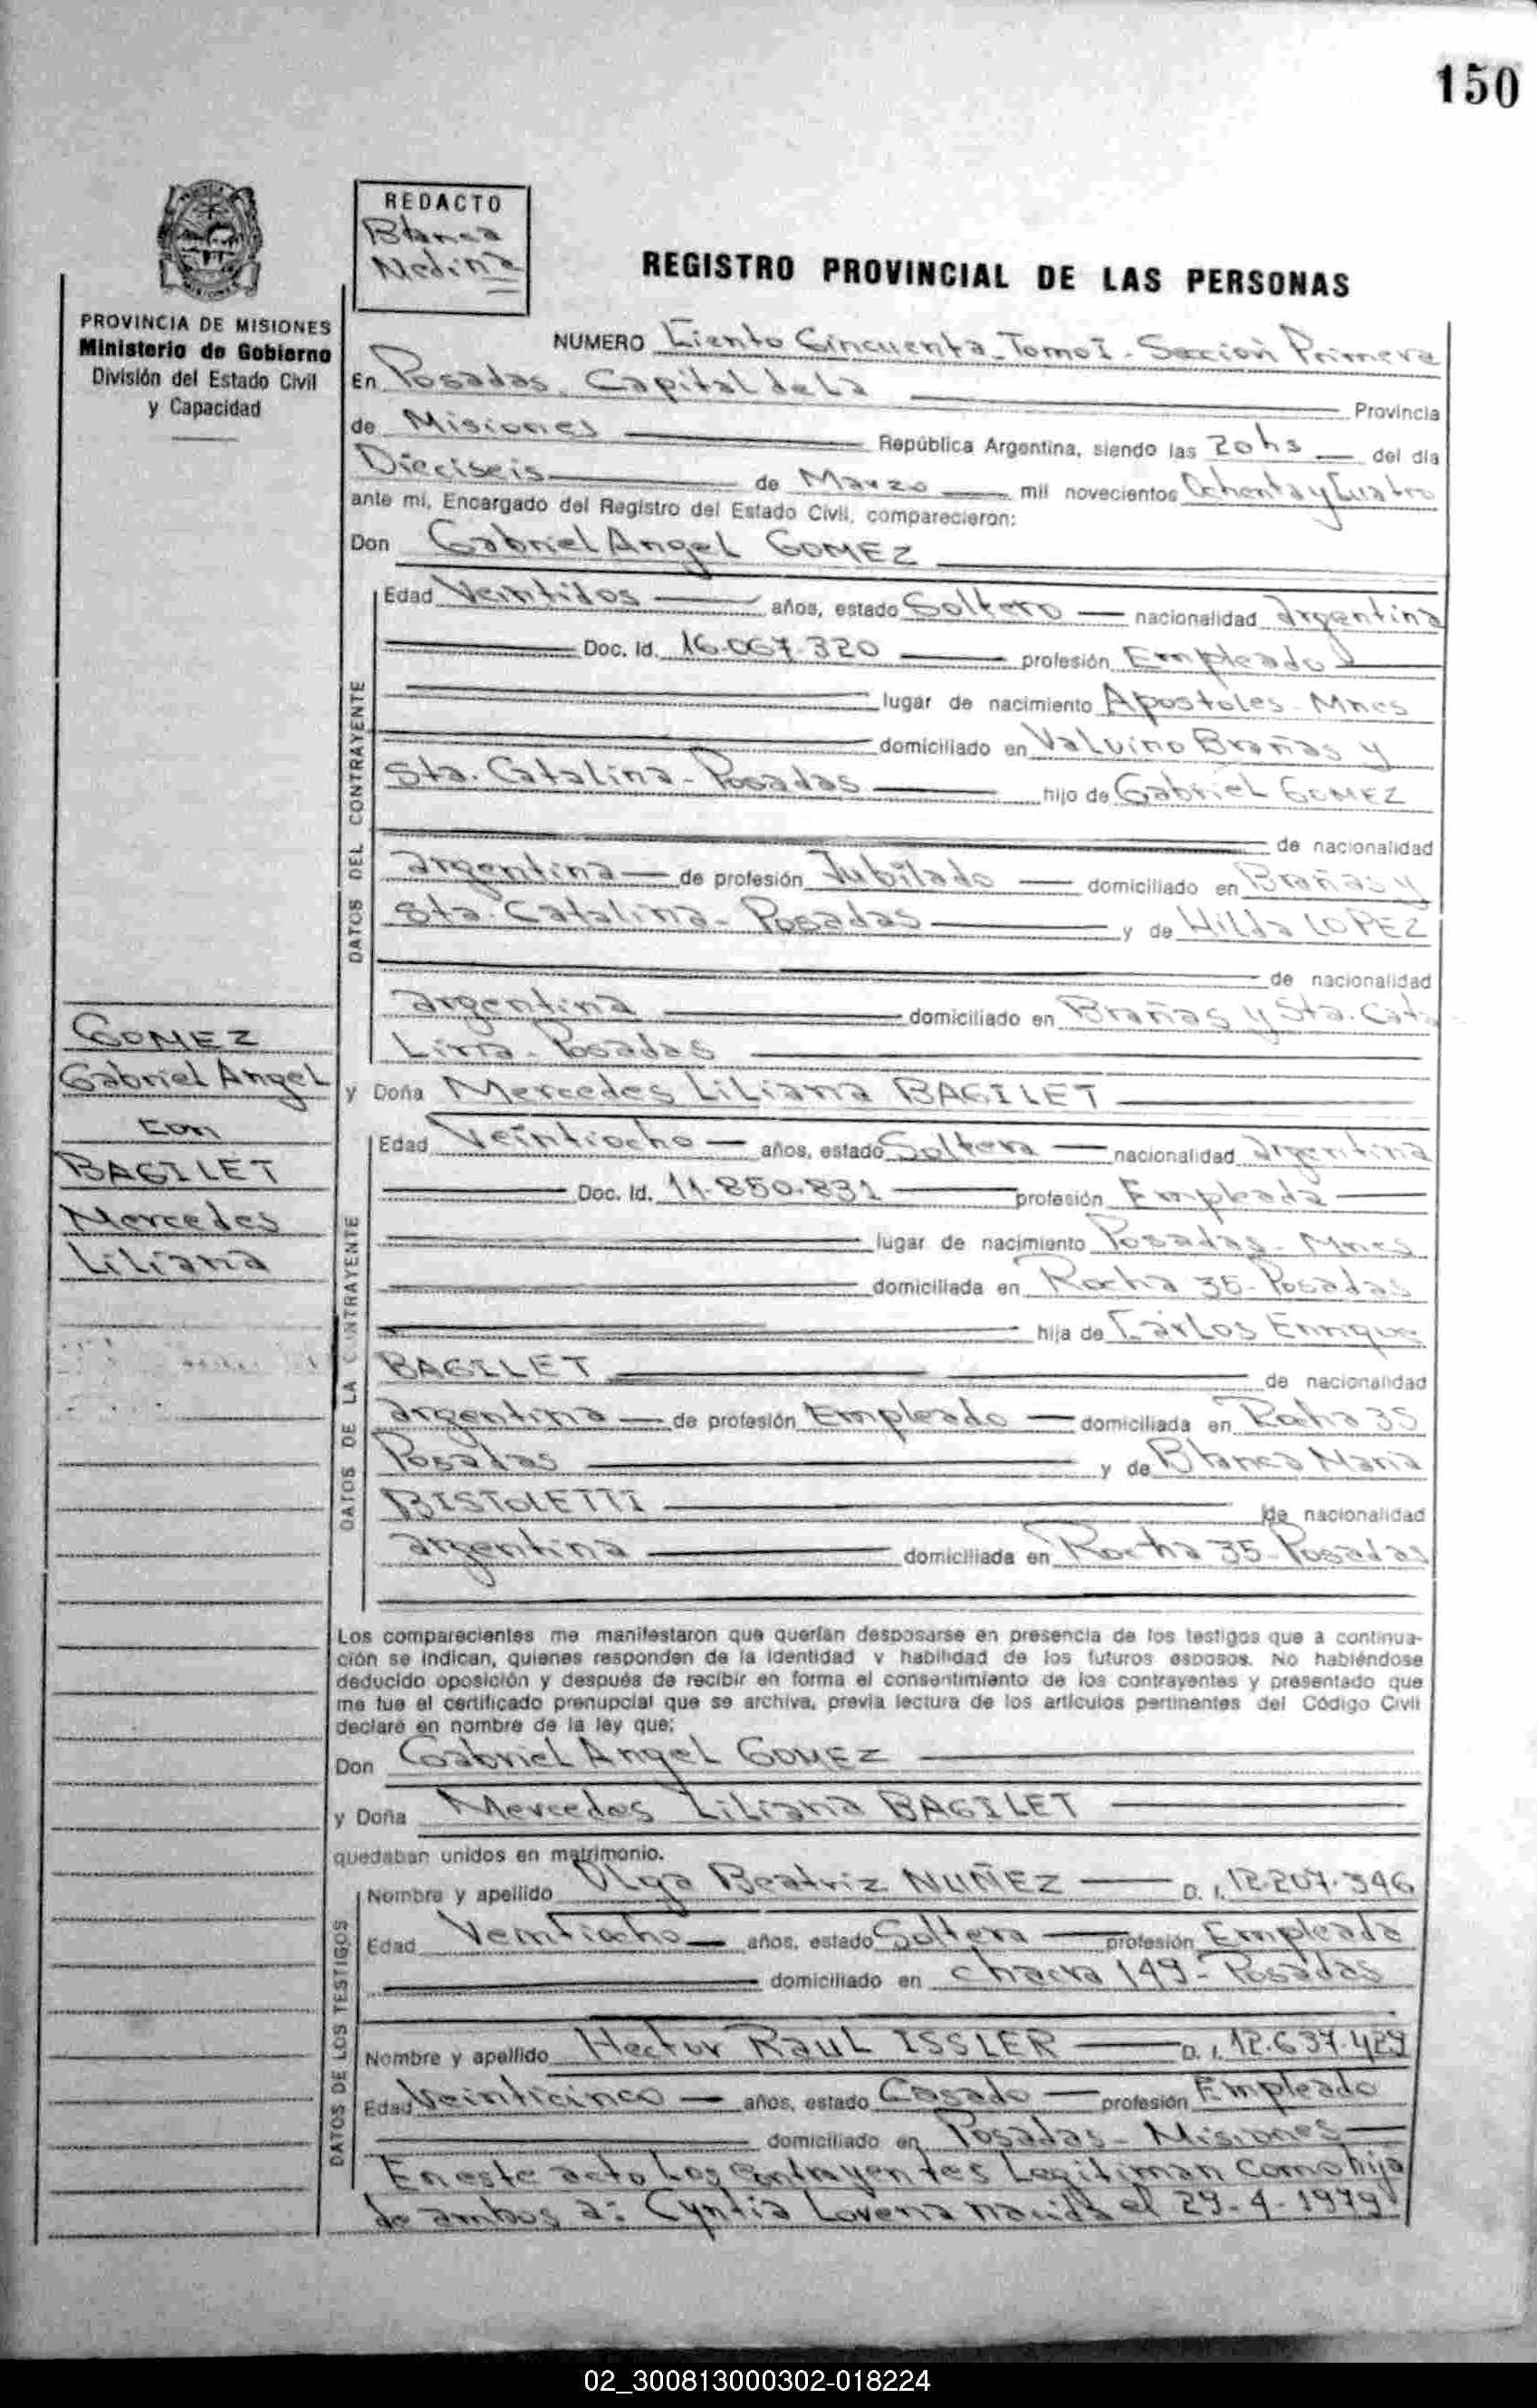 150
REDACTO
Blanca
Medina
REGISTRO PROVINCIAL DE LAS PERSONAS
PROVINCIA DE MISIONES
Ministerio de Gobierno
División del Estado Civil
y Capacidad
NUMERO Ciento Cincuenta - Tomo I - Sección Primera
En Posadas, Capital de La Provincia
de Misiones República Argentina, siendo las 20 hs del día
Dieciseis de Marzo mil novecientos Ochenta y Cuatro
ante mí, Encargado del Registro del Estado Civil, comparecieron:
Don Gabriel Angel GOMEZ
DATOS DEL CONTRAYENTE
Edad Veintidos años, estado Soltero nacionalidad argentina
Doc. Id. 16.067.320 profesión Empleado
lugar de nacimiento Apostoles - Mnes
domiciliado en Valvino Brañas y
Sta. Catalina - Posadas hijo de Gabriel GOMEZ
de nacionalidad
argentina de profesión Jubilado domiciliado en Brañas y
Sta. Catalina - Posadas y de Hilda LOPEZ
de nacionalidad
argentina domiciliado en Brañas y Sta. Cata-
Lina - Posadas
GOMEZ
Gabriel Angel
con
BAGILET
Mercedes
Liliana
y Doña Mercedes Liliana BAGILET
DATOS DE LA CONTRAYENTE
Edad Veintiocho años, estado Soltera nacionalidad argentina
Doc. Id. 11.850.831 profesión Empleada
lugar de nacimiento Posadas - Mnes
domiciliada en Rocha 35 - Posadas
hija de Carlos Enrique
BAGILET de nacionalidad
argentina de profesión Empleado domiciliada en Rocha 35
Posadas y de Blanca Maria
BISTOLETTI de nacionalidad
argentina domiciliada en Rocha 35 - Posadas
Los comparecientes me manifestaron que querían desposarse en presencia de los testigos que a continua-
ción se indican, quienes responden de la identidad y habilidad de los futuros esposos. No habiéndose
deducido oposición y después de recibir en forma el consentimiento de los contrayentes y presentado que
me fue el certificado prenupcial que se archiva, previa lectura de los artículos pertinentes del Código Civil
declaré en nombre de la ley que:
Don Gabriel Angel GOMEZ
y Doña Mercedes Liliana BAGILET
quedaban unidos en matrimonio.
DATOS DE LOS TESTIGOS
Nombre y apellido Olga Beatriz NUÑEZ D. I. 12.207.346
Edad Veintiocho años, estado Soltera profesión Empleada
domiciliado en Chacra 149 - Posadas
Nombre y apellido Hector Raul ISSLER D. I. 12.637.429
Edad Veinticinco años, estado Casado profesión Empleado
domiciliado en Posadas - Misiones
En este acto Los contrayentes Legitiman como hija
de ambos a: Cyntia Lorena nacida el 29-4-1979
02_300813000302-018224